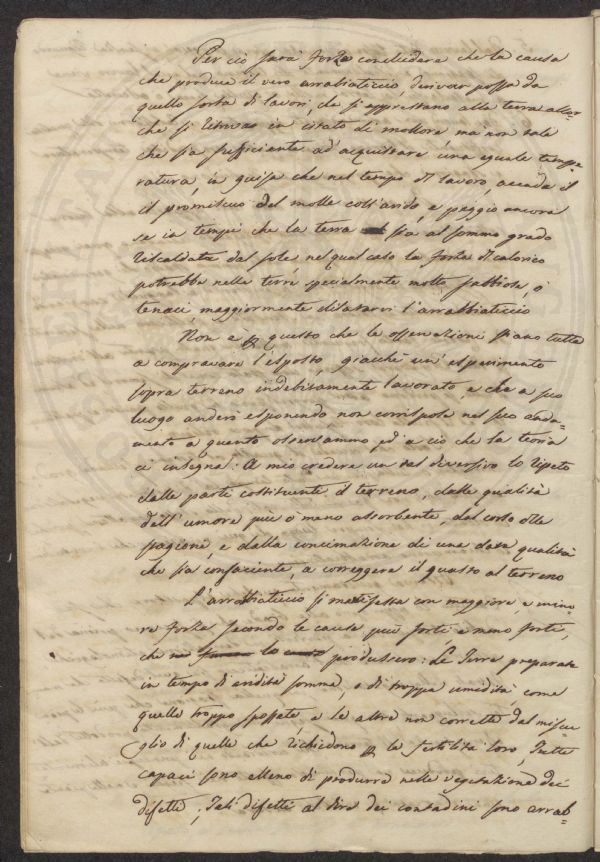 Per ciò sarà forza concludere che la causa
che produce il vero arrabiaticcio derivar possa da
quella sorta di lavori, che si apprestano alla terra allor-
chè si ritrova in istato di mollore ma non tale
che sia sufficiente ad acquistare una eguale tempe-
ratura, in guisa che nel tempo di lavoro, accada il
il promiscuo del molle coll'arido, e peggio ancora
se in tempi che la terra sia al sommo grado
riscaldata dal sole nel qual caso la forza di calorico
potrebbe nelle terre specialmente molto sabbiose, o
tenaci, maggiormente dilatarsi l'arrabbiaticcio
Non è p questo che le osservazioni siano tutte
a comprovare l'esposto, giacchè un' esperimento
sopra terreno indebitamente lavorato, e che a suo
luogo anderò esponendo non corrispose nel suo anda-
mento a quanto osservammo, ed a ciò che la teoria
ci insegna: A mio credere un tal diversivo lo ripeto
dalle parti costituente il terreno, dalle qualità
dell' umore più o meno assorbente, dal corso delle
stagioni, e dalla concimazione di una data qualità
che sia confaciente, a correggere il guasto al terreno
L'arrabbiaticcio si manifesta con maggiore e mino-
re forza secondo le cause più forti e meno forti,
che lo produssero: Le Terre preparate
in tempo di aridità somma, o di troppa umidità, come
quelle troppo spossate, e le altre non corrette dal miscu-
glio di quelle che richiedono p la fertilità loro, Tutte
capaci sono elleno di produrre nelle vegetazione dei
difetti, Tali difetti al dire dei contadini sono arrab-